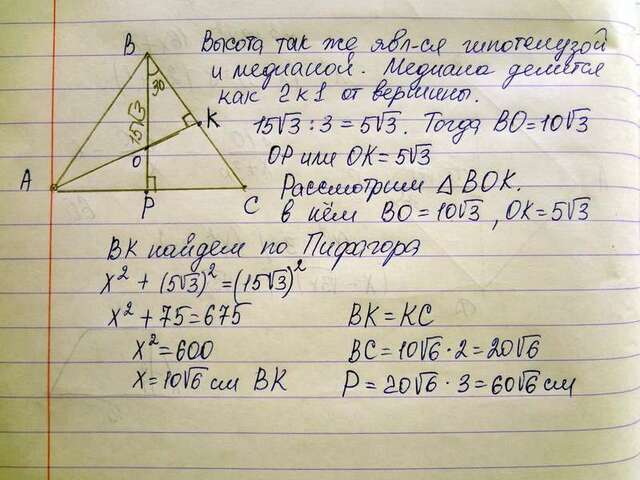 B
30
15√3
K
O
A
P
C
Высота так же явл-ся гипотенузой
и медианой. Медиана делится
как 2 к 1 от вершины.
15√3 : 3 = 5√3. Тогда BO = 10√3
OP или OK = 5√3
Рассмотрим △ BOK.
в нём BO = 10√3, OK = 5√3
BK найдем по Пифагора
x² + (5√3)² = (15√3)²
x² + 75 = 675
BK = KC
x² = 600
BC = 10√6 · 2 = 20√6
x = 10√6 см BK
P = 20√6 · 3 = 60√6 см